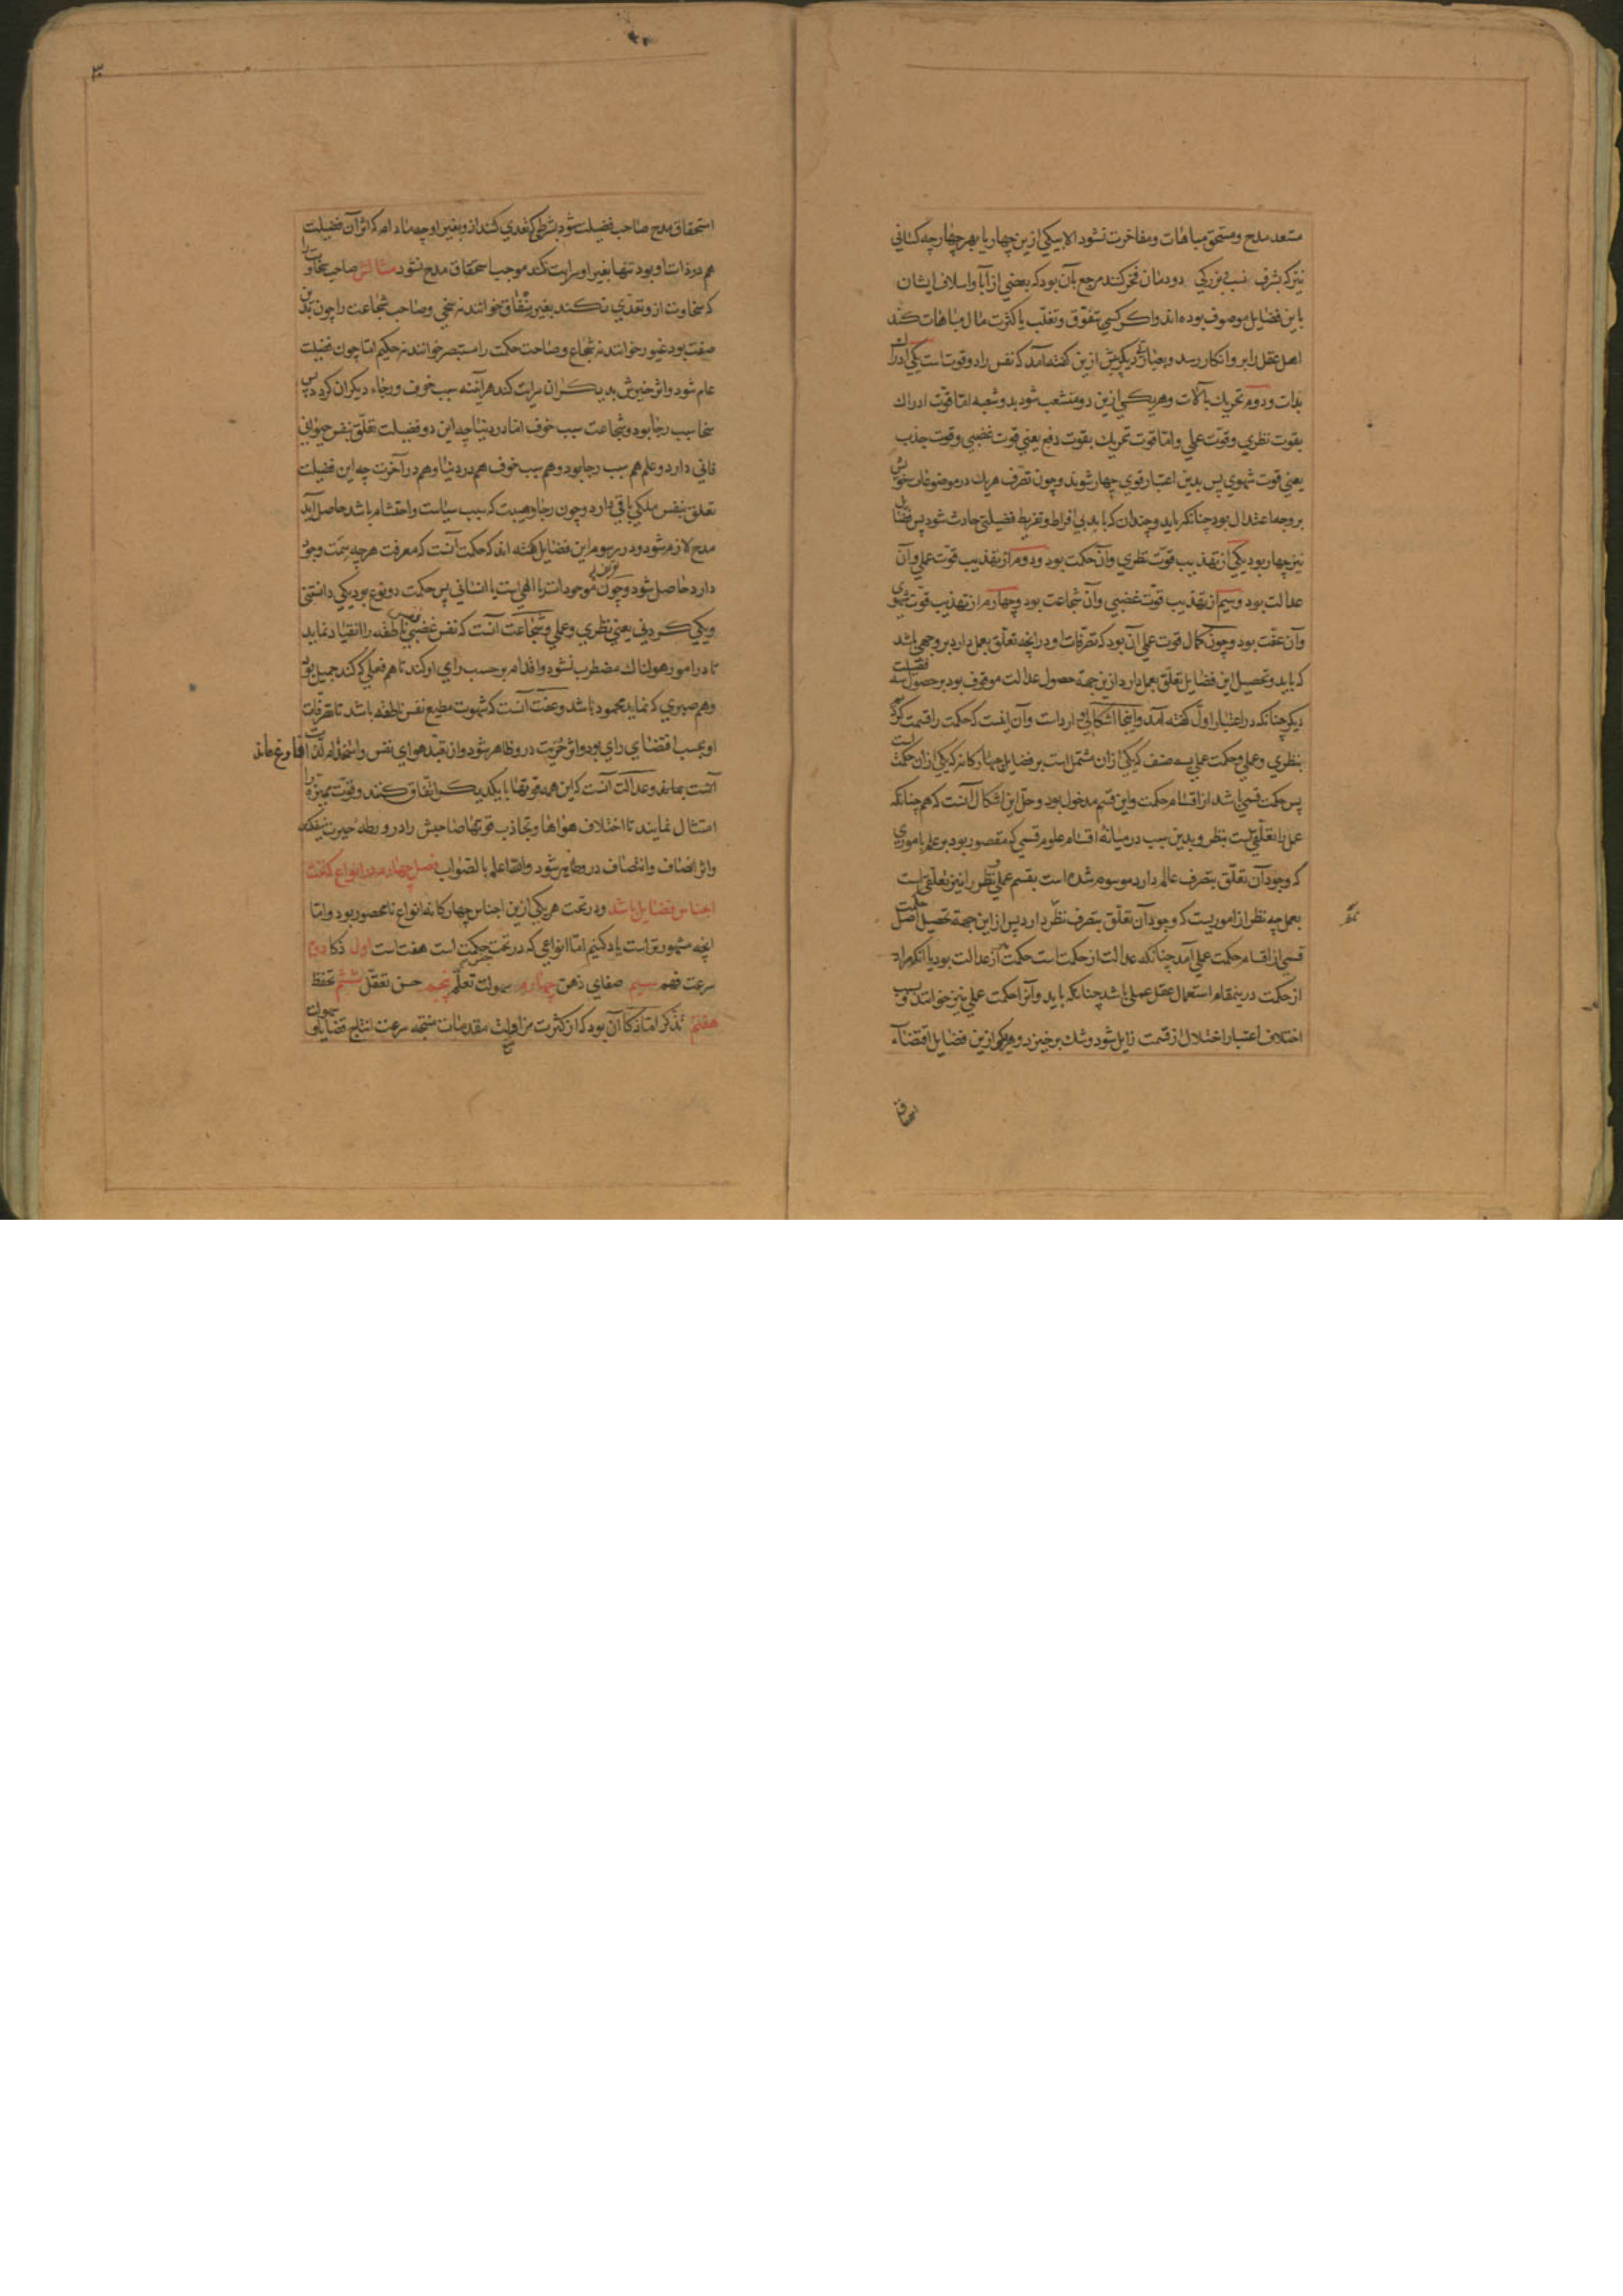 مستعد مدح و مستحق مباهات و مفاخرت نشود الا بیکی ازین چهار یا بهر چهار چه کسانی
نیز که بشرف نسب و بزرکی دودمان فخر کنند مرجع بآن بود که بعضی از آبا و اسلاف ایشان
باین فضایل موصوف بوده اند و اکر کسی بتفوق و تغلب یا کثرت مال مباهات کند
اهل عقل را برو انکار رسد و بعبارتی دیکر پیش ازین کفته آمد که نفس را دو قوت است یکی ادراک
بذات و دوم تحریک بآلات و هر یکی ازین دو منشعب شود بدو شعبه اما قوت ادراک
بقوت نظری و قوت عملی و اما قوت تحریک بقوت دفع یعنی قوت غضبی و قوت جذب
یعنی قوت شهوی پس بدین اعتبار قوی چهار شوند و چون تصرف هر یک در موضوعات خویش
بر وجه اعتدال بود چنانکه باید و چندان که باید بی افراط و تفریط فضیلتی حادث شود پس فضایل
نیز چهار بود یکی از تهذیب قوت نظری و آن حکمت بود و دوم از تهذیب قوت عملی و آن
عدالت بود و سیم از تهذیب قوت غضبی و آن شجاعت بود و چهارم از تهذیب قوت شهوی
و آن عفت بود و چون کمال قوت عملی آن بود که تصرفات او در آنچه تعلق بعمل دارد بر وجهی باشد
که باید و تحصیل این فضایل تعلق بعمل دارد ازین جهة حصول عدالت موقوف بود بر حصول سه فضیلت
دیکر چنانکه در اعتبار اول کفته آمد و اینجا اشکالی وارد است و آن اینست که حکمت را قسمت کردند
بنظری و عملی و حکمت عملی بسه صنف که یکی ازان مشتمل است بر فضایل چهارکانه که یکی ازان حکمت است
پس حکمت قسمی باشد از اقسام حکمت و این قسم مدخول بود و حل این اشکال آنست که هم چنانکه
عمل را تعلقی است بنظر و بدین سبب در میانه اقسام علوم قسمی که مقصور بود بر علم باموری
که وجود آن تعلق بتصرف عالم دارد موسوم شده است بقسم عملی نظر را نیز تعلقی است
بعمل چه نظر از اموریست که وجود آن تعلق بتصرف نظر دارد پس از این جهة تحصیل اصل حکمت
قسمی از اقسام حکمت عملی آمد چنانکه عدالت از حکمت است حکمت از عدالت بود یا آنکه مراد
از حکمت درینمقام استعمال عقل عملی باشد چنانکه باید و آنرا حکمت عملی نیز خوانند و بسبب
اختلاف اعتبار اختلال از قسمت زایل شود و شک برخیزد و هر یکی ازین فضایل اقتضاء
استحقاق
استحقاق مدح صاحب فضیلت بشرطی کند که تعدی کند ازو بغیر او چه مادام که اثر آن فضیلت
هم در ذات او بود تنها بغیر او سرایت نکند موجب استحقاق مدح نشود مثالش صاحب سخاوت را
که سخاوت ازو تعدی نکند بغیر منفاق خوانند نه سخی و صاحب شجاعت را چون بدین
صفت بود غیور خوانند نه شجاع و صاحب حکمت را مستبصر خوانند نه حکیم اما چون فضیلت
عام شود و اثر خیرش بدیکران سرایت کند هر آینه سبب خوف و رجاء دیکران کردد پس
سخا سبب رجا بود و شجاعت سبب خوف اما در دنیا چه این دو فضیلت تعلق بنفس حیوانی
فانی دارد و علم هم سبب رجا بود و هم سبب خوف هم در دنیا و هم در آخرت چه این فضیلت
تعلق بنفس ملکی باقی دارد و چون رجا و هیبت که سبب سیاست و احتشام باشد حاصل آید
مدح لازم شود و در رسوم این فضایل کفته اند که حکمت آنست که معرفت هر چه سمت وجود
دارد حاصل شود و چون موجودات یا الهی است یا انسانی پس حکمت دو نوع بود یکی دانستنی
و یکی کردنی یعنی نظری و عملی و شجاعت آنست که نفس غضبی نفس ناطقه را انقیاد نماید
تا در امور هولناک مضطرب نشود و اقدام بر حسب رای او کند تا هم فعلی که کند جمیل بود
و هم صبری که نماید محمود باشد و عفت آنست که شهوت مطیع نفس ناطقه باشد تا تصرفات
او بحسب اقتضای رای او بود و اثر حریت درو ظاهر شود و از تعبد هوای نفس و استخدام لذات فارغ ماند
آنست بماند و عدالت آنست که این همه قوتها با یکدیکر اتفاق کنند و قوت ممیزه را
امتثال نمایند تا اختلاف هواها و تجاذب قوتها صاحبش را در ورطه حیرت نیفکند
و اثر انصاف و انتصاف درو ظاهر شود والله اعلم بالصواب فصل چهارم در انواع که تحت
اجناس فضایل باشد و در تحت هر یکی ازین اجناس چهارکانه انواع نامحصور بود و اما
آنچه مشهورتر است یاد کنیم اما انواعی که در تحت جنس حکمت است هفت است اول ذکا دوم
سرعت فهم سیم صفای ذهن چهارم سهولت تعلم پنجم حسن تعقل ششم تحفظ
هفتم تذکر اما ذکا آن بود که از کثرت مزاولت مقدمات منتجه سرعت انتاج قضایا و سهولت